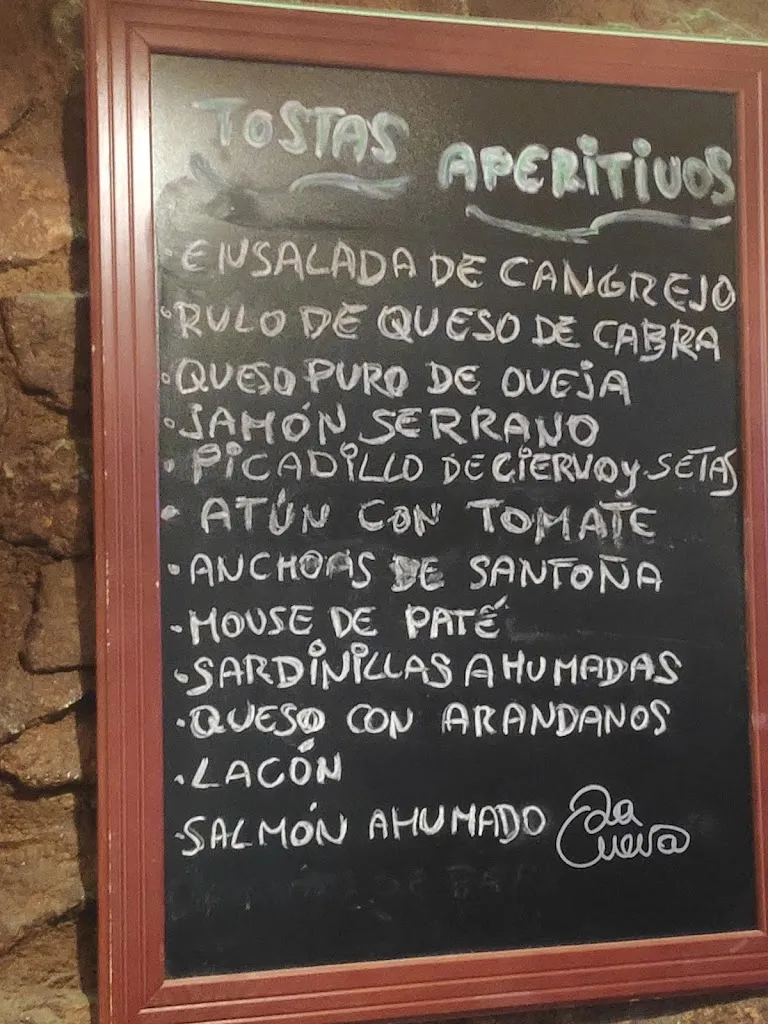 TOSTAS APERITIVOS
· ENSALADA DE CANGREJO
· RULO DE QUESO DE CABRA
· QUESO PURO DE OVEJA
· JAMÓN SERRANO
· PICADILLO DE CIERVO y SETAS
· ATÚN CON TOMATE
· ANCHOAS DE SANTOÑA
· MOUSE DE PATÉ
· SARDINILLAS AHUMADAS
· QUESO CON ARANDANOS
· LACÓN
· SALMÓN AHUMADO
La Cueva